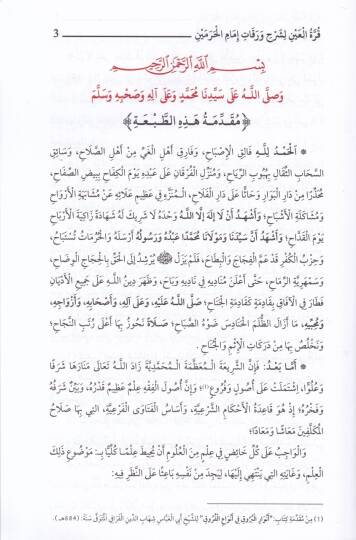 قُرَّةُ الْعَيْنِ لِشَرْحِ وَرَقَاتِ إِمَامِ الْحَرَمَيْنِ 3
بِسْمِ اللَّهِ الرَّحْمَٰنِ الرَّحِيمِ
وَصَلَّى اللَّهُ عَلَى سَيِّدِنَا مُحَمَّدٍ وَعَلَى آلِهِ وَصَحْبِهِ وَسَلَّمَ
﴿ مُقَدِّمَةُ هَذِهِ الطَّبْعَةِ ﴾
* الْحَمْدُ لِلَّهِ فَالِقِ الْإِصْبَاحِ، وَفَارِقِ أَهْلِ الْغَيِّ مِنْ أَهْلِ الصَّلَاحِ، وَسَائِقِ
السَّحَابِ الثِّقَالِ بِهُبُوبِ الرِّيَاحِ، وَمُنَزِّلِ الْفُرْقَانِ عَلَى عَبْدِهِ يَوْمَ الْكِفَاحِ بِبِيضِ الصِّفَاحِ،
مُحَذِّرًا مِنْ دَارِ الْبَوَارِ وَحَاثًّا عَلَى دَارِ الْفَلَاحِ، الْمُنَزَّهِ فِي عَظِيمِ عَلَائِهِ عَنْ مُشَابَهَةِ الْأَرْوَاحِ
وَمُشَاكَلَةِ الْأَشْبَاحِ؛ وَأَشْهَدُ أَنْ لَا إِلَهَ إِلَّا اللَّهُ وَحْدَهُ لَا شَرِيكَ لَهُ شَهَادَةً زَاكِيَةَ الْأَرْبَاحِ
يَوْمَ الْقِدَاحِ؛ وَأَشْهَدُ أَنَّ سَيِّدَنَا وَمَوْلَانَا مُحَمَّدًا عَبْدُهُ وَرَسُولُهُ أَرْسَلَهُ وَالْحُرُمَاتُ تُسْتَبَاحُ،
وَحِزْبُ الْكُفْرِ قَدْ عَمَّ الْفِجَاجَ وَالْبِطَاحَ، فَلَمْ يَزَلْ ﷺ يُرْشِدُ إِلَى الْحَقِّ بِالْحِجَاجِ الْوِضَاحِ،
وَسَمْهَرِيَّةِ الرِّمَاحِ، حَتَّى أَعْلَنَ مُنَادِيهِ فِي نَادِيهِ وَبَاحَ، وَظَهَرَ دِينُ اللَّهِ عَلَى جَمِيعِ الْأَدْيَانِ
فَطَارَ فِي الْآفَاقِ بِقَادِمَةٍ كَقَادِمَةِ الْجَنَاحِ؛ صَلَّى اللَّهُ عَلَيْهِ، وَعَلَى آلِهِ، وَأَصْحَابِهِ، وَأَزْوَاجِهِ،
وَمُحِبِّيهِ، مَا أَزَالَ الظُّلَمَ الْحَنَادِسَ ضَوْءُ الصَّبَاحِ؛ صَلَاةً نَحُوزُ بِهَا أَعْلَى رُتَبِ النَّجَاحِ؛
وَنَخْلُصُ بِهَا مِنْ دَرَكَاتِ الْإِثْمِ وَالْجُنَاحِ.
* أَمَّا بَعْدُ: فَإِنَّ الشَّرِيعَةَ الْمُعَظَّمَةَ الْمُحَمَّدِيَّةَ زَادَ اللَّهُ تَعَالَى مَنَارَهَا شَرَفًا
وَعُلُوًّا، اشْتَمَلَتْ عَلَى أُصُولٍ وَفُرُوعٍ(1)؛ وَإِنَّ أُصُولَ الْفِقْهِ عِلْمٌ عَظِيمٌ قَدْرُهُ، وَبَيِّنٌ شَرَفُهُ
وَفَخْرُهُ؛ إِذْ هُوَ قَاعِدَةُ الْأَحْكَامِ الشَّرْعِيَّةِ، وَأَسَاسُ الْفَتَاوَى الْفَرْعِيَّةِ، الَّتِي بِهَا صَلَاحُ
الْمُكَلَّفِينَ مَعَاشًا وَمَعَادًا؛
وَالْوَاجِبُ عَلَى كُلِّ خَائِضٍ فِي عِلْمٍ مِنَ الْعُلُومِ أَنْ يُحِيطَ عِلْمًا كُلِّيًّا بِـ: مَوْضُوعِ ذَلِكَ
الْعِلْمِ، وَغَايَتِهِ الَّتِي يَنْتَهِي إِلَيْهَا، لِيَجِدَ مِنْ نَفْسِهِ بَاعِثًا عَلَى النَّظَرِ فِيهِ:
(1) مِنْ مُقَدِّمَةِ كِتَابِ: "أَنْوَارِ الْبُرُوقِ فِي أَنْوَاءِ الْفُرُوقِ" لِلشَّيْخِ أَبِي الْعَبَّاسِ شِهَابِ الدِّينِ الْقَرَافِيِّ الْمُتَوَفَّى سَنَةَ: (684هـ).